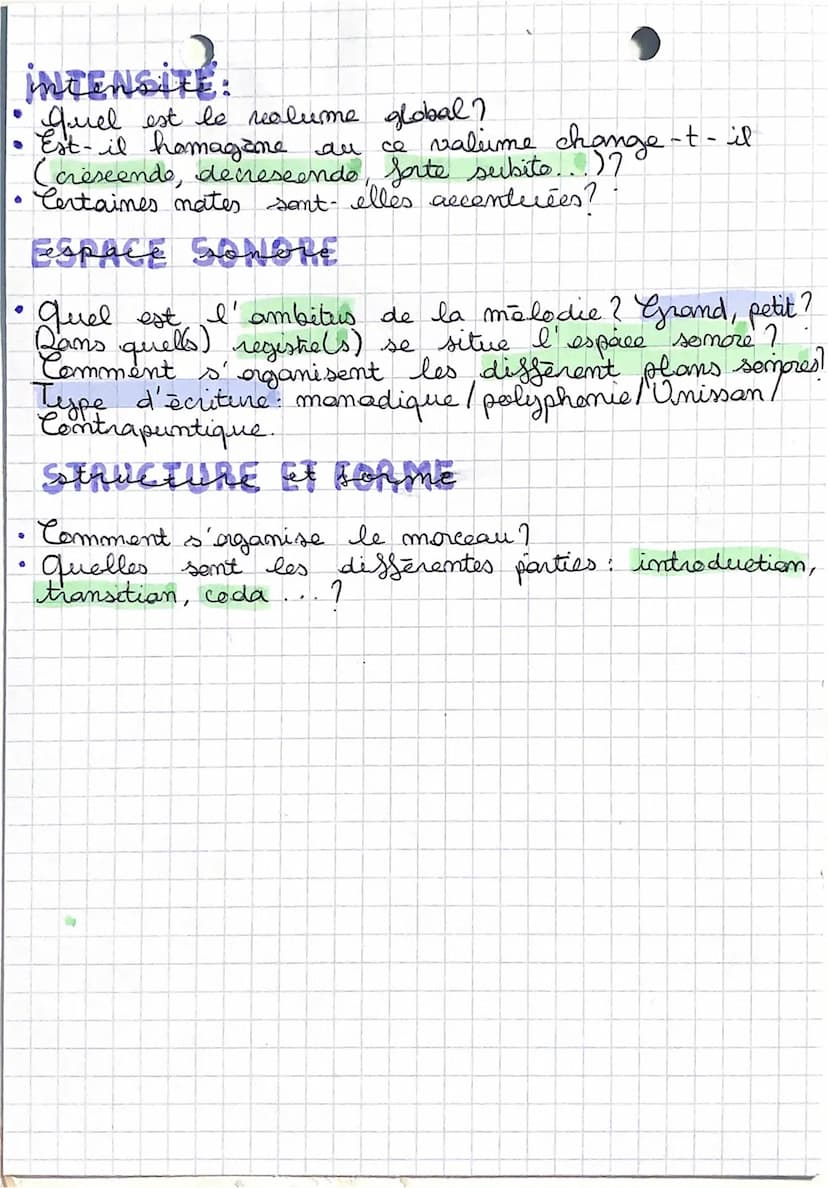 INTENSITÉ:
• Quel est le volume global ?
• Est-il homogène ou ce volume change-t-il
(crescendo, decrescendo, forte subito...)?
• Certaines notes sont-elles accentuées?
ESPACE SONORE
• Quel est l'ambitus de la mélodie ? Grand, petit ?
Dans quel(s) registre(s) se situe l'espace sonore ?
Comment s'organisent les différent plans sonores?
Type d'écriture: monodique / polyphonie / Unisson /
Contrapuntique.
STRUCTURE ET FORME
• Comment s'organise le morceau ?
• Quelles sont les différentes parties : introduction,
transition, coda ... ?